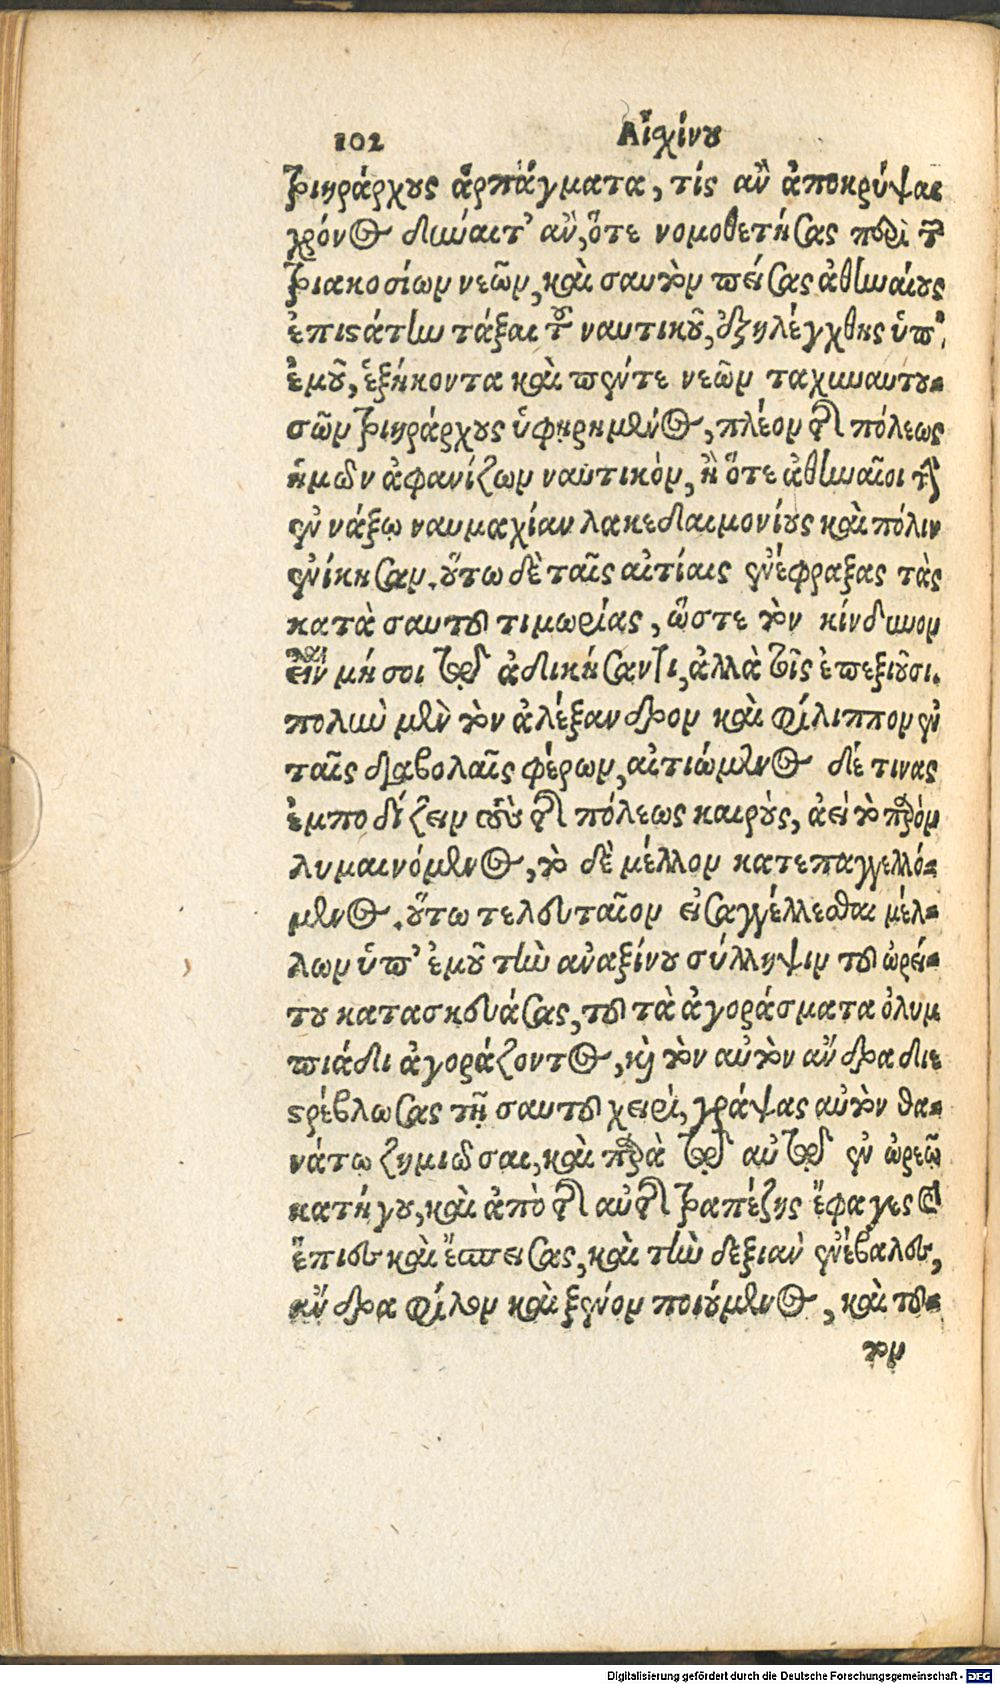 102 Αἰσχίνου
τριηράρχους ἁρπάγματα, τίς ἂν ἀποκρύψαι
χρόνος δύναιτ' ἂν, ὅτε νομοθετήσας περὶ τῶν
τριακοσίων νεῶν, καὶ σαυτὸν πείσας ἀθηναίους
ἐπιστάτην τάξαι τοῦ ναυτικοῦ, ἐξηλέγχθης ὑπ'
ἐμοῦ, ἑξήκοντα καὶ πέντε νεῶν ταχυναυτου-
σῶν τριηράρχους ὑφηρημένος, πλέον τῆς πόλεως
ἡμῶν ἀφανίζων ναυτικὸν, ἢ ὅτε ἀθηναῖοι τὴν
ἐν νάξῳ ναυμαχίαν λακεδαιμονίους καὶ πόλιν
ἐνίκησαν. οὕτω δὲ ταῖς αἰτίαις ἐνέφραξας τὰς
κατὰ σαυτοῦ τιμωρίας, ὥστε τὸν κίνδυνον
εἶναι μή σοι τῷ ἀδικήσαντι, ἀλλὰ τοῖς ἐπεξιοῦσι.
πολὺν μὲν τὸν ἀλέξανδρον καὶ φίλιππον ἐν
ταῖς διαβολαῖς φέρων, αἰτιώμενος δέ τινας
ἐμποδίζειν τοὺς τῆς πόλεως καιρὸυς, ἀεὶ τὸ παρὸν
λυμαινόμενος, τὸ δὲ μέλλον κατεπαγγελλό-
μενος. οὕτω τελευταῖον εἰσαγγέλλεσθαι μέλ-
λων ὑπ' ἐμοῦ τὴν ἀναξίνου σύλληψιν τοῦ ὠρεί-
του κατασκευάσας, τοῦ τὰ ἀγοράσματα ὀλυμ
πιάδι ἀγοράζοντος, καὶ τὸν αὐτὸν ἄνδρα διε
στρέβλωσας τῇ σαυτοῦ χειρὶ, γράψας αὐτὸν θα-
νάτῳ ζημιῶσαι, καὶ παρὰ τῷ αὐτῷ ἐν ὠρεῷ
κατήγου, καὶ ἀπὸ τῆς αὐτῆς τραπέζης ἔφαγες καὶ
ἔπιες καὶ ἔσπεισας, καὶ τὴν δεξιὰν ἐνέβαλες,
ἄνδρα φίλον καὶ ξένον ποιούμενος, καὶ τοῦ-
τον
Digitalisierung gefördert durch die Deutsche Forschungsgemeinschaft - DFG